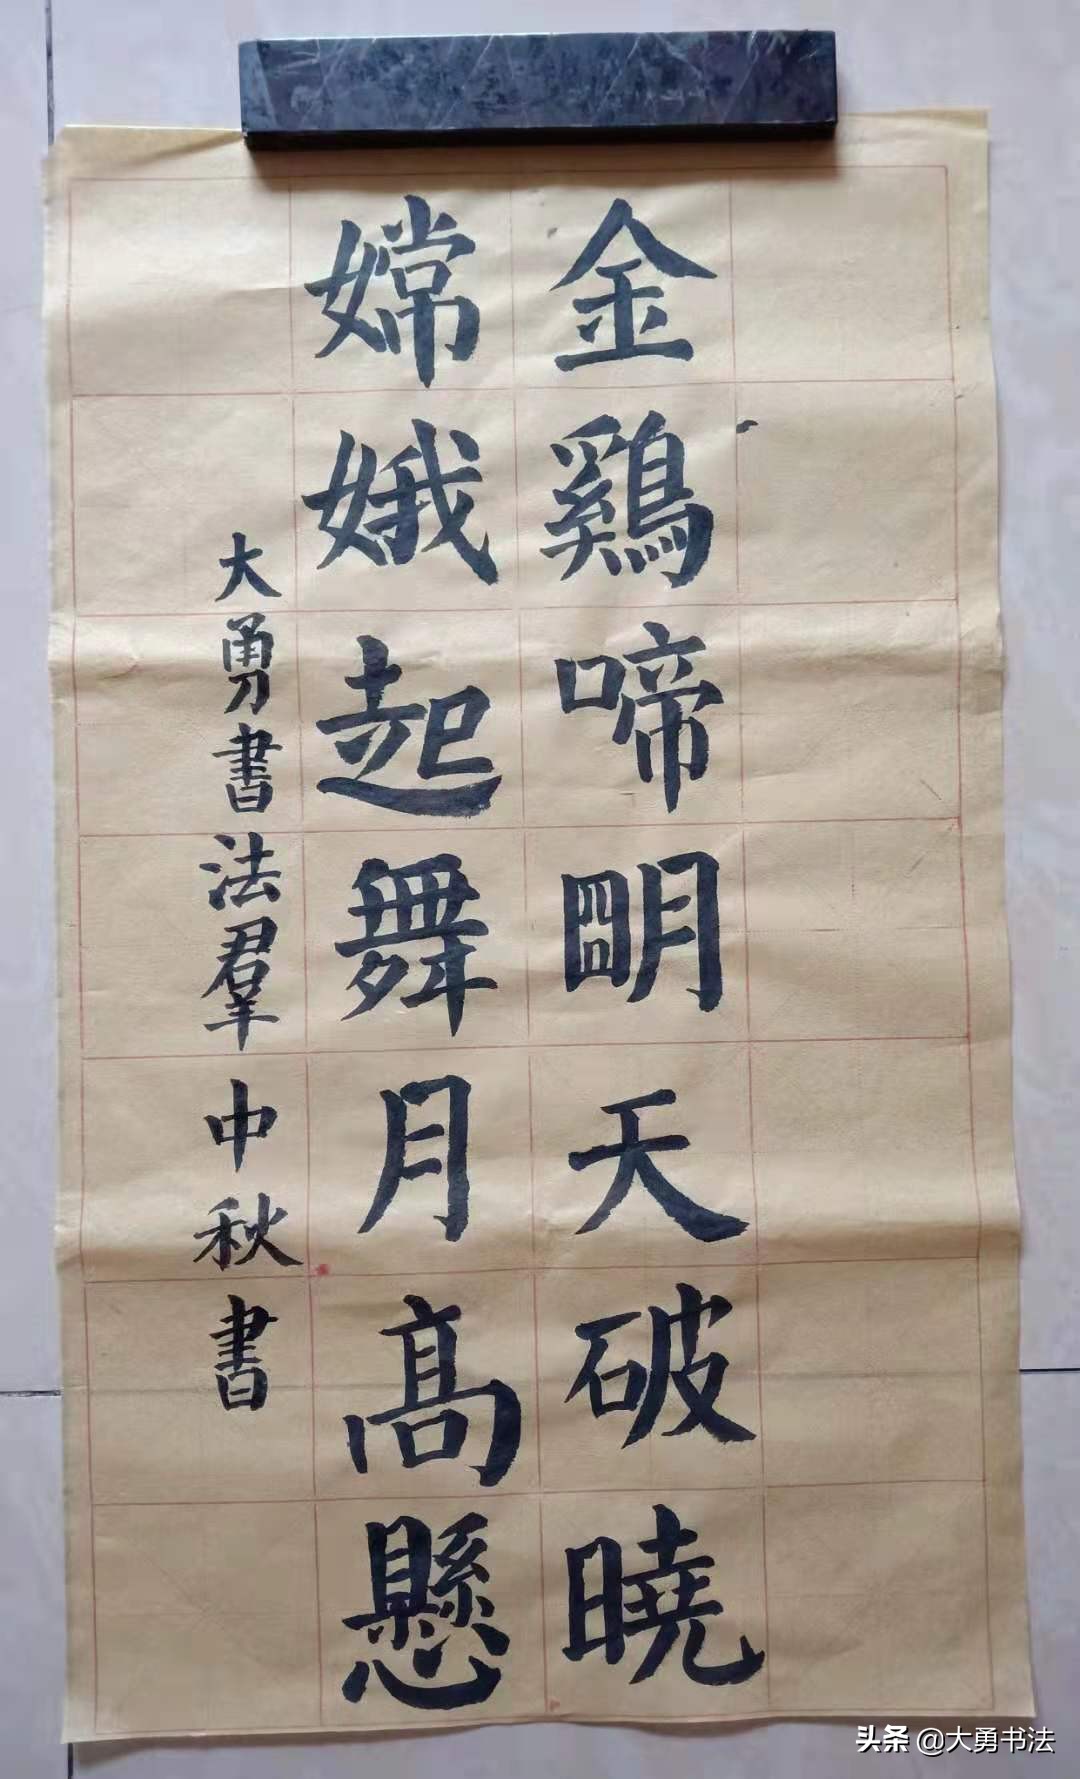 金鷄啼朙天破曉
嫦娥起舞月高懸
大勇書法羣中秋書
头条 @大勇书法